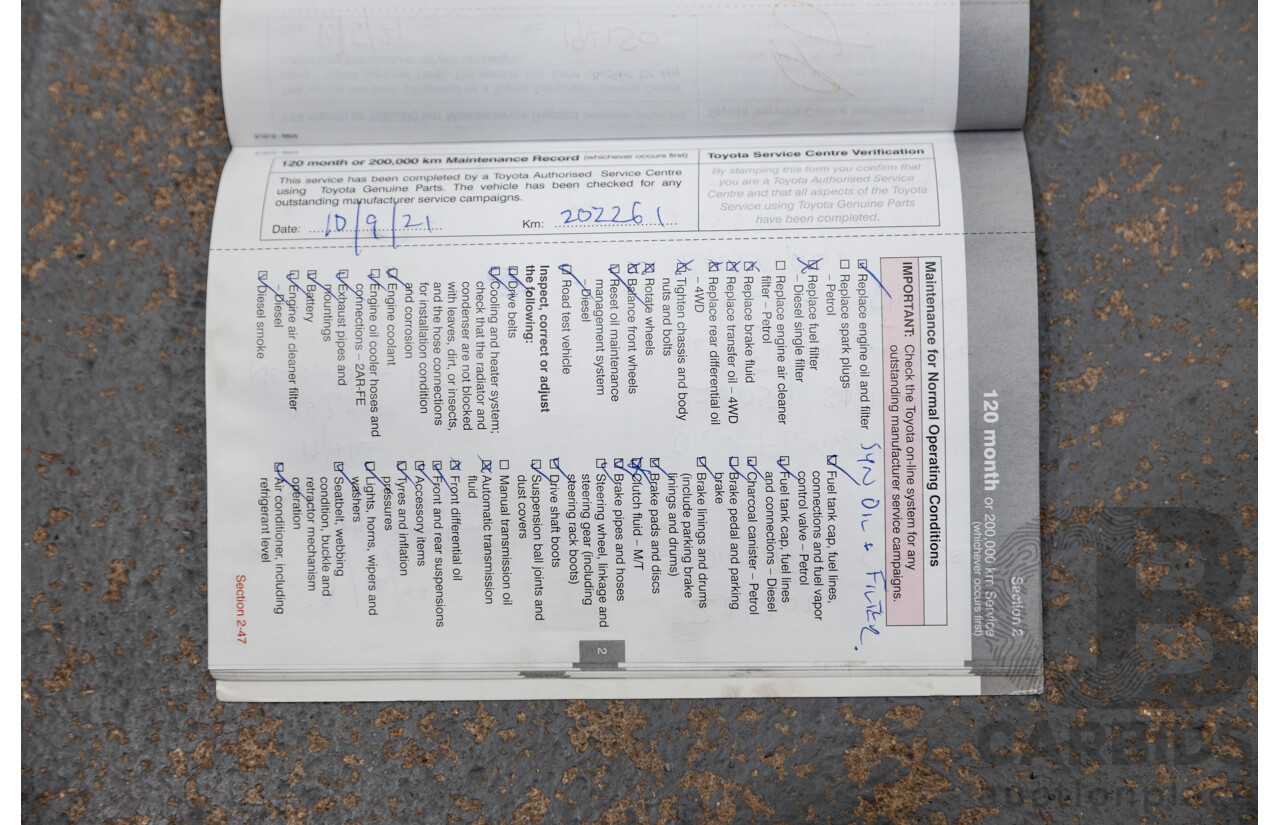 120 month or 200,000 km Maintenance Record (whichever occurs first)
This service has been completed by a Toyota Authorised Service Centre
using Toyota Genuine Parts. The vehicle has been checked for any
outstanding manufacturer service campaigns.
Date: 10/9/21
Km: 202261
Toyota Service Centre Verification
By stamping this form you confirm that
you are a Toyota Authorised Service
Centre and that all aspects of the Toyota
Service using Toyota Genuine Parts
have been completed.
Section 2
120 month or 200,000 km Service
(whichever occurs first)
Maintenance for Normal Operating Conditions
IMPORTANT: Check the Toyota on-line system for any
outstanding manufacturer service campaigns.
Replace engine oil and filter
SYN OIL & FILTER.
Replace spark plugs
– Petrol
Replace fuel filter
– Diesel single filter
Replace engine air cleaner
filter – Petrol
Replace brake fluid
Replace transfer oil – 4WD
Replace rear differential oil
– 4WD
Tighten chassis and body
nuts and bolts
Rotate wheels
Balance front wheels
Reset oil maintenance
management system
– Diesel
Road test vehicle
Inspect, correct or adjust
the following:
Drive belts
Cooling and heater system;
check that the radiator and
condenser are not blocked
with leaves, dirt, or insects,
and the hose connections
for installation condition
and corrosion
Engine coolant
Engine oil cooler hoses and
connections – 2AR-FE
Exhaust pipes and
mountings
Battery
Engine air cleaner filter
– Diesel
Diesel smoke
Fuel tank cap, fuel lines,
connections and fuel vapor
control valve – Petrol
Fuel tank cap, fuel lines
and connections – Diesel
Charcoal canister – Petrol
Brake pedal and parking
brake
Brake linings and drums
(include parking brake
linings and drums)
Brake pads and discs
Clutch fluid – M/T
Brake pipes and hoses
Steering wheel, linkage and
steering gear (including
steering rack boots)
Drive shaft boots
Suspension ball joints and
dust covers
Manual transmission oil
Automatic transmission
fluid
Front differential oil
Front and rear suspensions
Accessory items
Tyres and inflation
pressures
Lights, horns, wipers and
washers
Seatbelt, webbing
condition, buckle and
retractor mechanism
operation
Air conditioner, including
refrigerant level
2
Section 2-47
CARBIDS
auctionplace